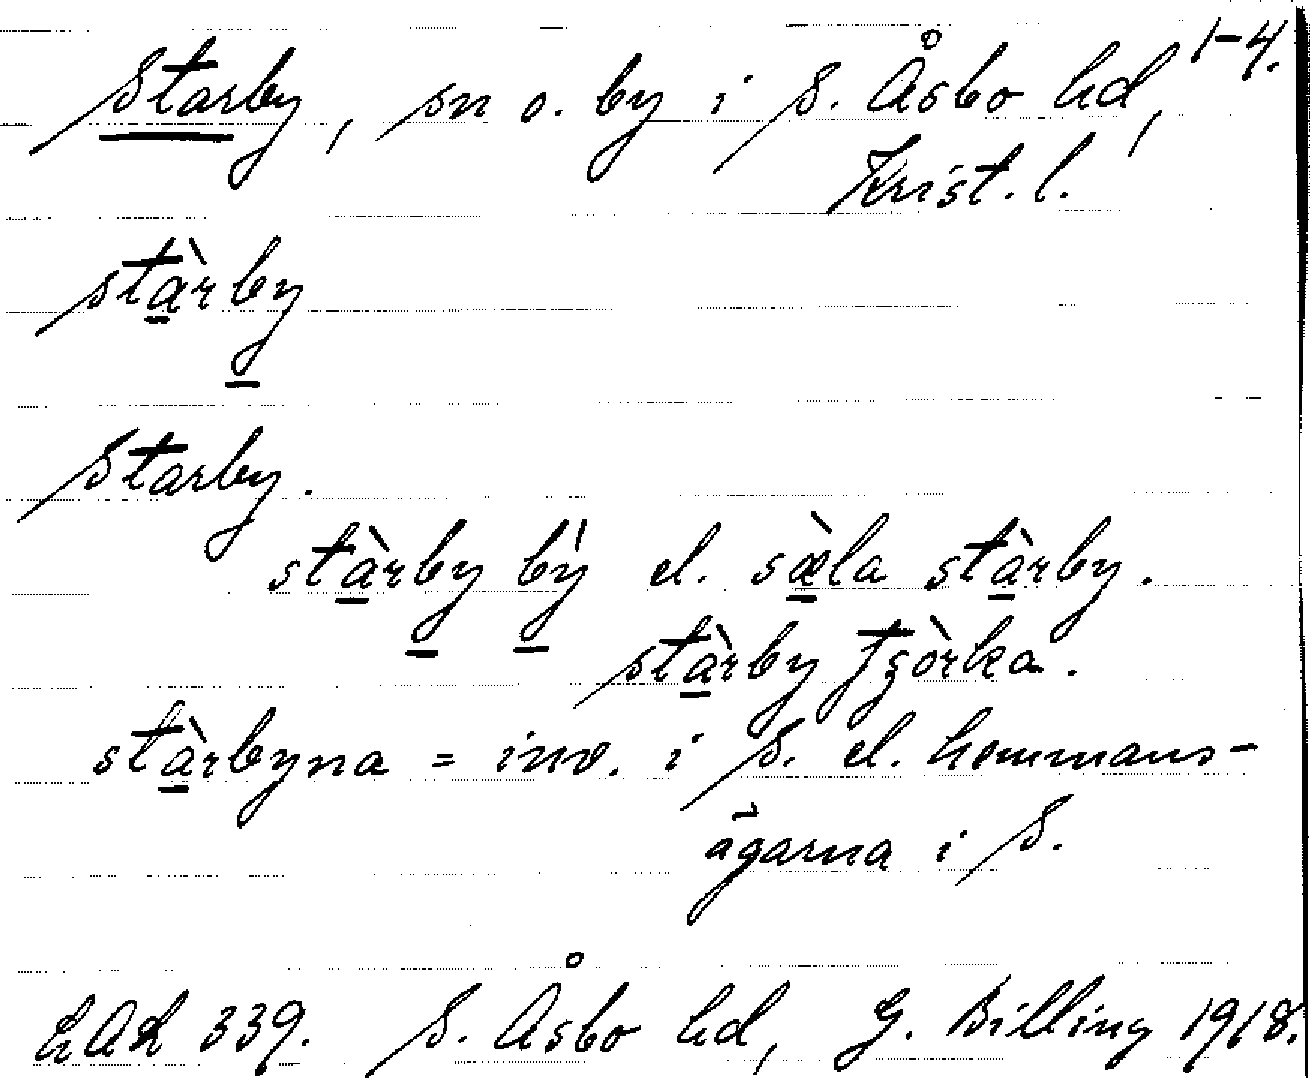 1-4.
Starby, sn o. by i S. Åsbo hd,
Krist. l.
stàrby
Starby.
stàrby bý el. sæ̀la stàrby.
stàrby tʂòrka.
stàrbyna = inv. i S. el. hemmans-
ägarna i S.
LAL 339. S. Åsbo hd, G. Billing 1918.